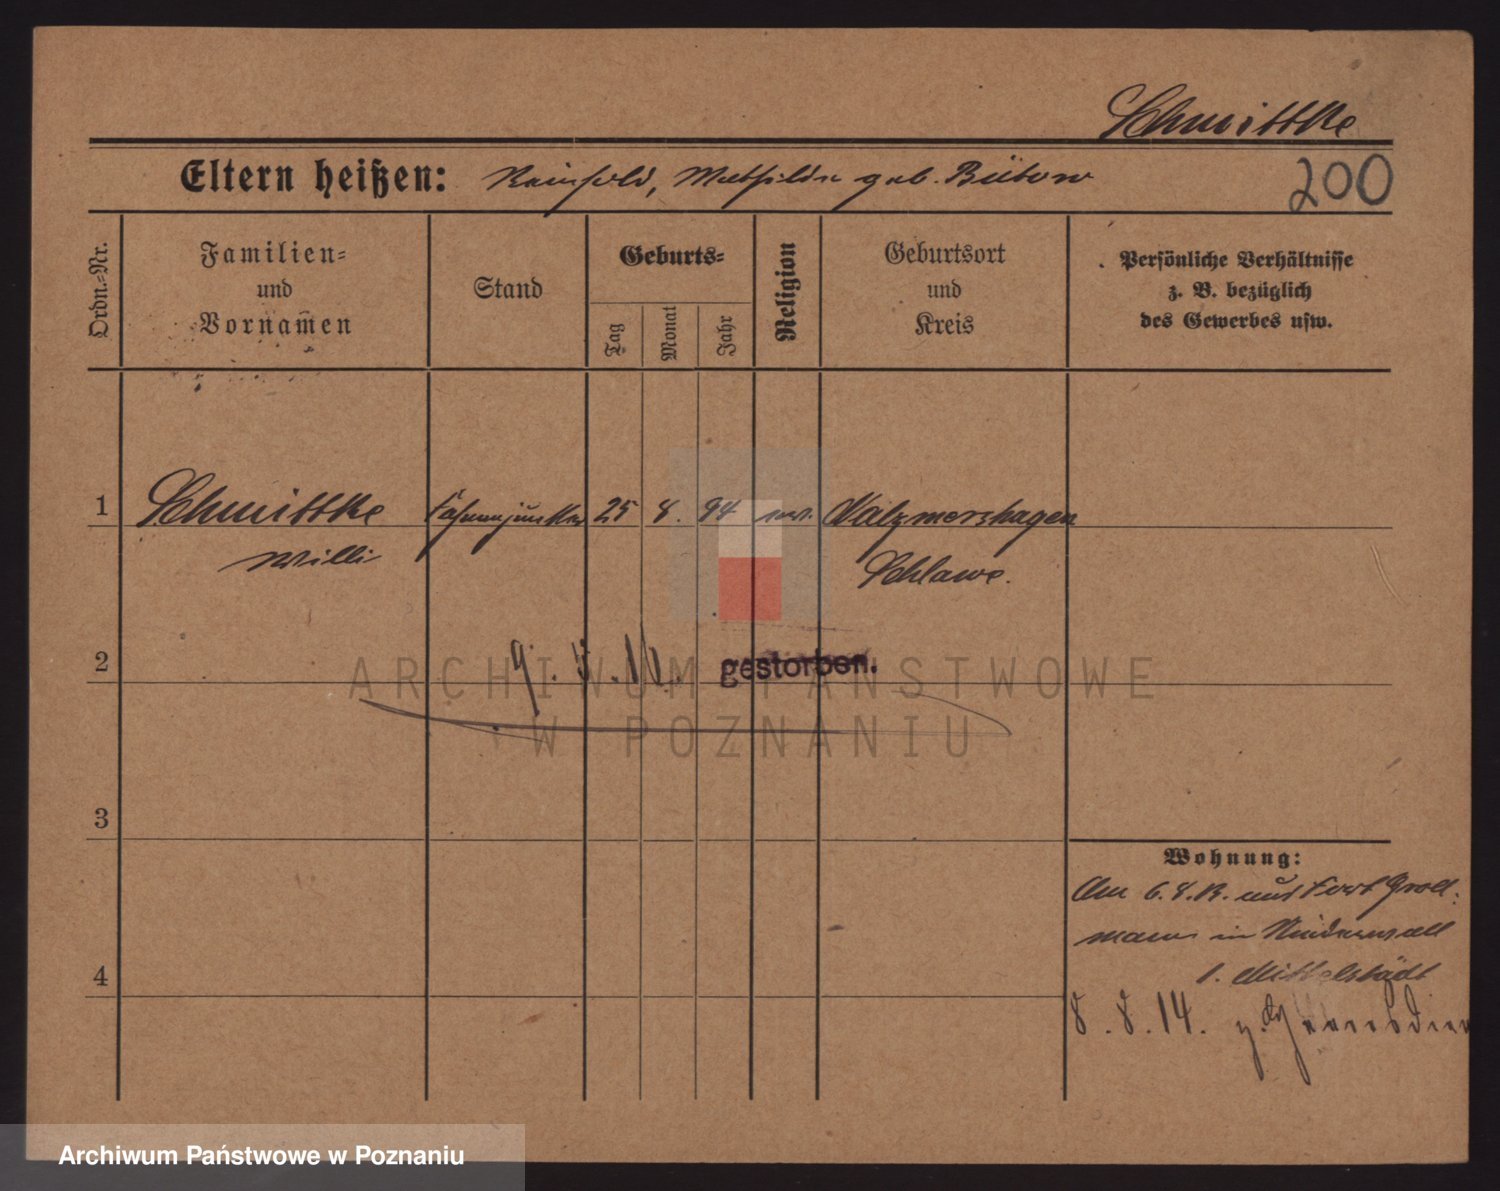 Schmittke
Eltern heißen: Reinhold, Mathilde geb. Bütow
200
Ordn.-Nr.
Familien-
und
Vornamen
Stand
Geburts-
Tag
Monat
Jahr
Religion
Geburtsort
und
Kreis
Persönliche Verhältnisse
z. B. bezüglich
des Gewerbes usw.
1 Schmittke Fahnenjunker 25 8. 94 ev. Malzmershagen
Willi Schlawe.
2 9. gestorben.
ARCHIWUM PAŃSTWOWE
W POZNANIU
3
Wohnung:
Am 6.8.13. auf Fort Groll-
mann in Niederwall
1. Mittelstädt
4
8.8.14. z.
Archiwum Państwowe w Poznaniu